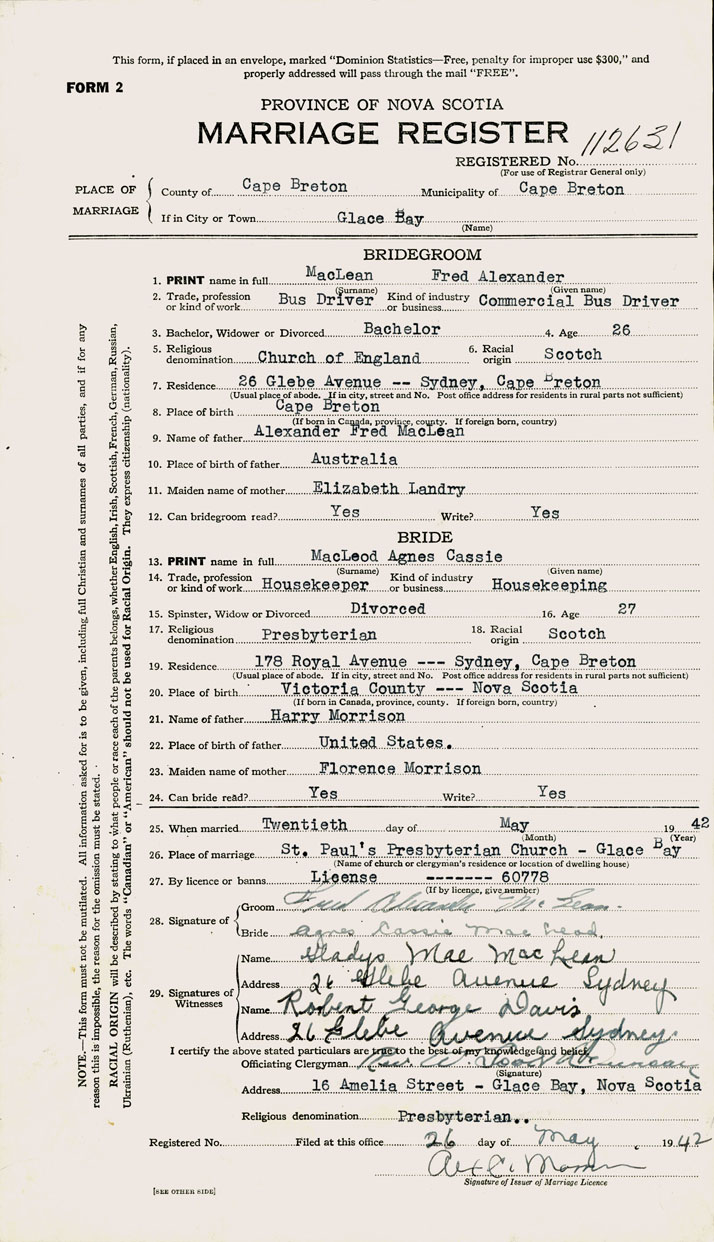 This form, if placed in an envelope, marked "Dominion Statistics—Free, penalty for improper use $300," and
properly addressed will pass through the mail "FREE".
FORM 2
PROVINCE OF NOVA SCOTIA
MARRIAGE REGISTER
REGISTERED No. 112631
(For use of Registrar General only)
PLACE OF MARRIAGE
County of Cape Breton Municipality of Cape Breton
If in City or Town Glace Bay
(Name)
BRIDEGROOM
1. PRINT name in full MacLean Fred Alexander
(Surname) (Given name)
2. Trade, profession or kind of work Bus Driver Kind of industry or business Commercial Bus Driver
3. Bachelor, Widower or Divorced Bachelor 4. Age 26
5. Religious denomination Church of England 6. Racial origin Scotch
7. Residence 26 Glebe Avenue -- Sydney, Cape Breton
(Usual place of abode. If in city, street and No. Post office address for residents in rural parts not sufficient)
8. Place of birth Cape Breton
(If born in Canada, province, county. If foreign born, country)
9. Name of father Alexander Fred MacLean
10. Place of birth of father Australia
11. Maiden name of mother Elizabeth Landry
12. Can bridegroom read? Yes Write? Yes
BRIDE
13. PRINT name in full MacLeod Agnes Cassie
(Surname) (Given name)
14. Trade, profession or kind of work Housekeeper Kind of industry or business Housekeeping
15. Spinster, Widow or Divorced Divorced 16. Age 27
17. Religious denomination Presbyterian 18. Racial origin Scotch
19. Residence 178 Royal Avenue --- Sydney, Cape Breton
(Usual place of abode. If in city, street and No. Post office address for residents in rural parts not sufficient)
20. Place of birth Victoria County --- Nova Scotia
(If born in Canada, province, county. If foreign born, country)
21. Name of father Harry Morrison
22. Place of birth of father United States.
23. Maiden name of mother Florence Morrison
24. Can bride read? Yes Write? Yes
25. When married Twentieth day of May 1942
(Month) (Year)
26. Place of marriage St. Paul's Presbyterian Church - Glace Bay
(Name of church or clergyman's residence or location of dwelling house)
27. By licence or banns License ------- 60778
(If by licence, give number)
28. Signature of
Groom Fred Alexander McLean.
Bride Agnes Cassie MacLeod.
29. Signatures of Witnesses
Name Gladys Mae MacLean
Address 26 Glebe Avenue Sydney
Name Robert George Davis
Address 26 Glebe Avenue Sydney.
I certify the above stated particulars are true to the best of my knowledge and belief.
Officiating Clergyman Rev. W.
(Signature)
Address 16 Amelia Street - Glace Bay, Nova Scotia
Religious denomination Presbyterian..
Registered No. Filed at this office 26 day of May 1942
Signature of Issuer of Marriage Licence
[SEE OTHER SIDE]
NOTE.—This form must not be mutilated. All information asked for is to be given, including full Christian and surnames of all parties, and if for any
reason this is impossible, the reason for the omission must be stated.
RACIAL ORIGIN will be described by stating to what people or race each of the parents belongs, whether English, Irish, Scottish, French, German, Russian,
Ukrainian (Ruthenian), etc. The words "Canadian" or "American" should not be used for Racial Origin. They express citizenship (nationality).